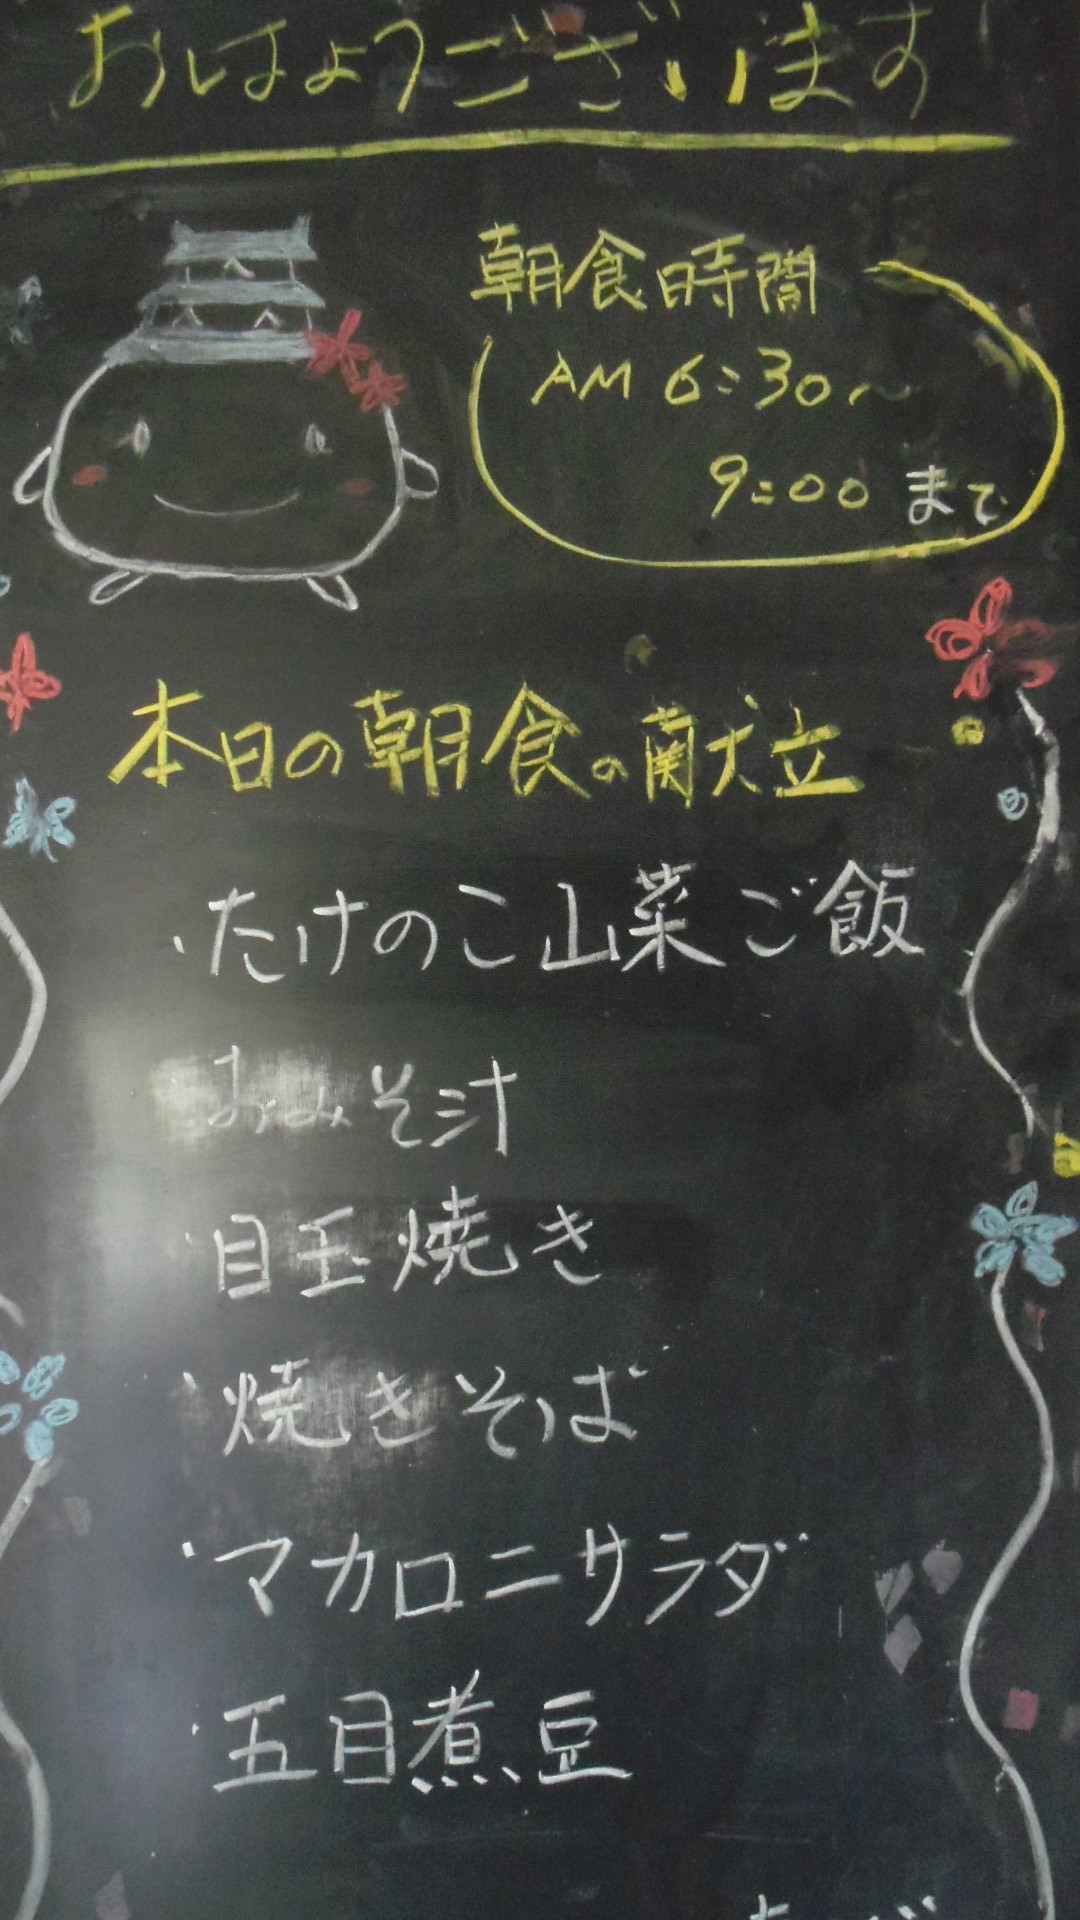 おはようございます
朝食時間
AM 6:30～
9:00 まで
本日の朝食の献立
・たけのこ山菜ご飯
おみそ汁
・目玉焼き
・焼きそば
・マカロニサラダ
・五目煮豆